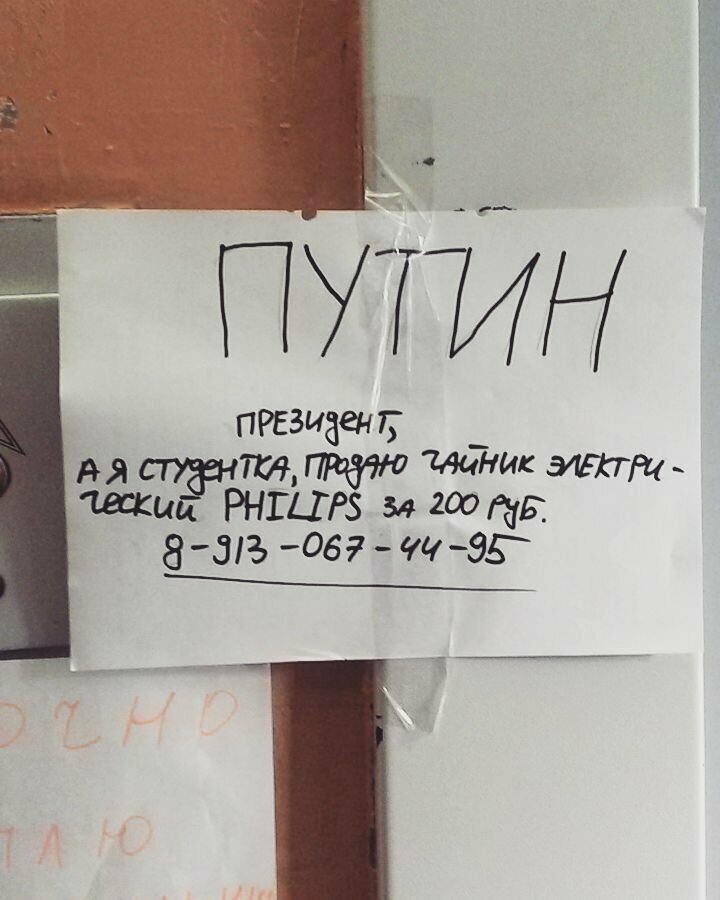 ПУТИН
ПРЕЗИДЕНТ,
А Я СТУДЕНТКА, ПРОДАЮ ЧАЙНИК ЭЛЕКТРИ-
ЧЕСКИЙ PHILIPS ЗА 200 РУБ.
8-913-067-44-95
ОЧНО